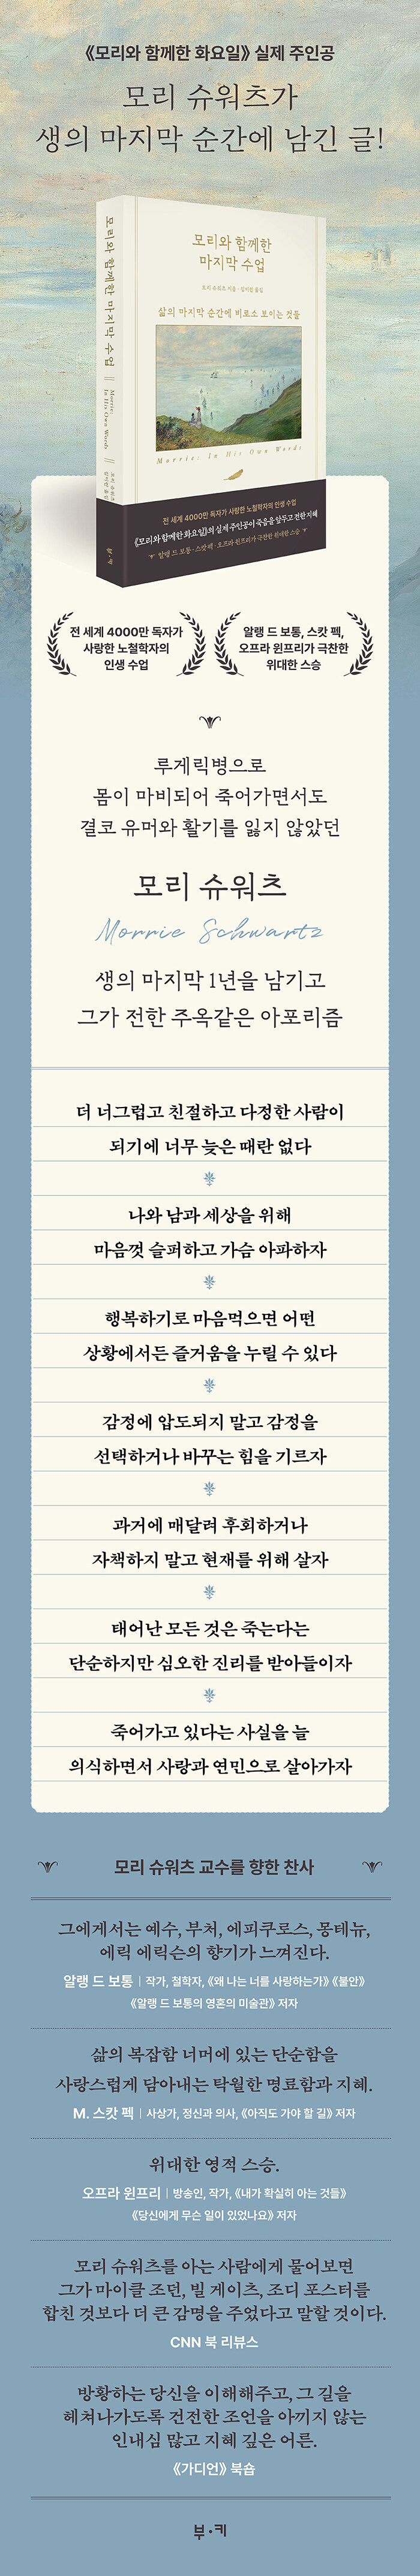 《모리와 함께한 화요일》 실제 주인공
모리 슈워츠가
생의 마지막 순간에 남긴 글!
모리와 함께한 마지막 수업
Morrie:
In His Own Words
부·키
모리와 함께한
마지막 수업
모리 슈워츠 지음·김미란 옮김
삶의 마지막 순간에 비로소 보이는 것들
Morrie: In His Own Words
전 세계 4000만 독자가 사랑한 노철학자의 인생 수업
《모리와 함께한 화요일》의 실제 주인공이 죽음을 앞두고 전한 지혜
알랭 드 보통·스캇 펙·오프라 윈프리가 극찬한 위대한 스승
전 세계 4000만 독자가
사랑한 노철학자의
인생 수업
알랭 드 보통, 스캇 펙,
오프라 윈프리가 극찬한
위대한 스승
루게릭병으로
몸이 마비되어 죽어가면서도
결코 유머와 활기를 잃지 않았던
모리 슈워츠
Morrie Schwartz
생의 마지막 1년을 남기고
그가 전한 주옥같은 아포리즘
더 너그럽고 친절하고 다정한 사람이
되기에 너무 늦은 때란 없다
나와 남과 세상을 위해
마음껏 슬퍼하고 가슴 아파하자
행복하기로 마음먹으면 어떤
상황에서든 즐거움을 누릴 수 있다
감정에 압도되지 말고 감정을
선택하거나 바꾸는 힘을 기르자
과거에 매달려 후회하거나
자책하지 말고 현재를 위해 살자
태어난 모든 것은 죽는다는
단순하지만 심오한 진리를 받아들이자
죽어가고 있다는 사실을 늘
의식하면서 사랑과 연민으로 살아가자
모리 슈워츠 교수를 향한 찬사
그에게서는 예수, 부처, 에피쿠로스, 몽테뉴,
에릭 에릭슨의 향기가 느껴진다.
알랭 드 보통 | 작가, 철학자, 《왜 나는 너를 사랑하는가》 《불안》
《알랭 드 보통의 영혼의 미술관》 저자
삶의 복잡함 너머에 있는 단순함을
사랑스럽게 담아내는 탁월한 명료함과 지혜.
M. 스캇 펙 | 사상가, 정신과 의사, 《아직도 가야 할 길》 저자
위대한 영적 스승.
오프라 윈프리 | 방송인, 작가, 《내가 확실히 아는 것들》
《당신에게 무슨 일이 있었나요》 저자
모리 슈워츠를 아는 사람에게 물어보면
그가 마이클 조던, 빌 게이츠, 조디 포스터를
합친 것보다 더 큰 감명을 주었다고 말할 것이다.
CNN 북 리뷰스
방황하는 당신을 이해해주고, 그 길을
헤쳐나가도록 건전한 조언을 아끼지 않는
인내심 많고 지혜 깊은 어른.
《가디언》 북숍
부·키